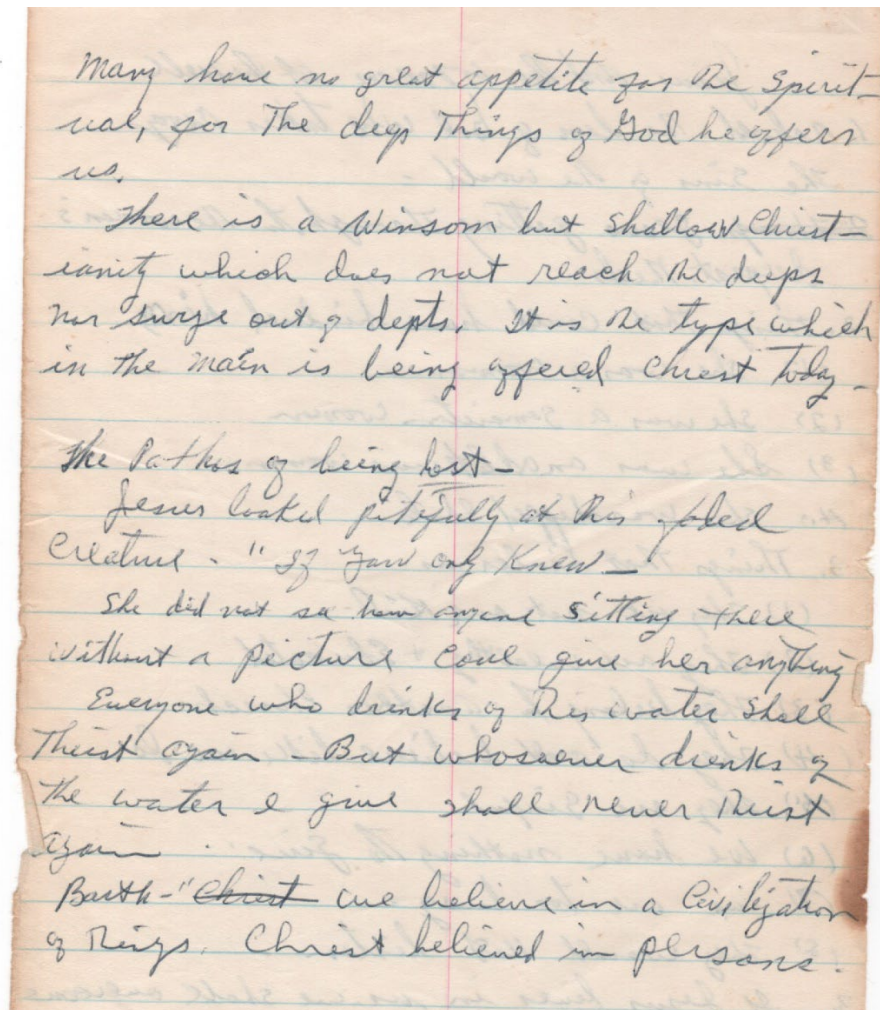 Many have no great appetite for the Spirit-
ual, for The deep Things of God he offers
us.
There is a Winsom but shallow Christ-
ianity which does not reach the deeps
nor surge out of depts. It is the type which
in the main is being offered Christ Today.
The Pathos of being lost-
Jesus looked pitifully at this faded
Creature - "If you only Knew -
She did not see how anyone sitting there
without a picture coul give her anything
Everyone who drinks of this water shall
Thirst again - But whosoever drinks of
the water I give shall never thirst
again.
Barth-" ~~Christ~~ we believe in a Civilization
of Things. Christ believed in persons.